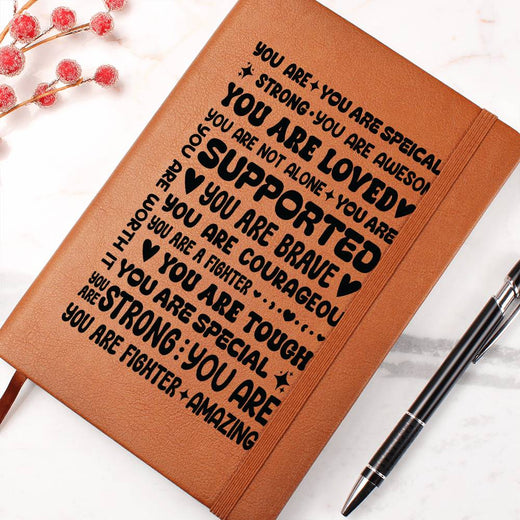 YOU ARE YOU ARE SPEICAL
STRONG · YOU ARE AWESOM
YOU ARE LOVED
YOU ARE NOT ALONE YOU ARE
SUPPORTED
YOU ARE WORTH IT
YOU ARE BRAVE
YOU ARE COURAGEOU
YOU ARE A FIGHTER
YOU ARE TOUGH
YOU ARE SPECIAL
YOU ARE STRONG : YOU ARE
YOU ARE FIGHTER AMAZING